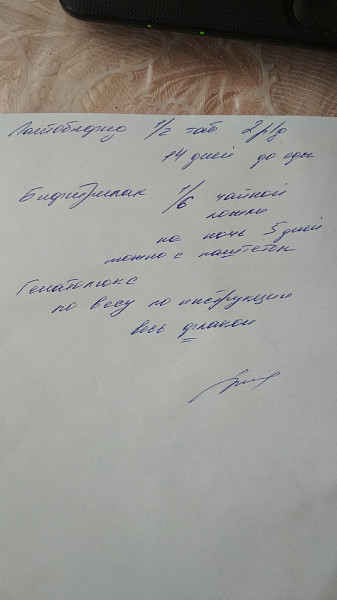 Лактобифид 1/2 таб 2 р/д
14 дней до еды
Бифитрилак 1/6 чайной
ложки
на ночь 5 дней
можно с паштетом
Гепатолюкс
по весу по инструкции
весь флакон